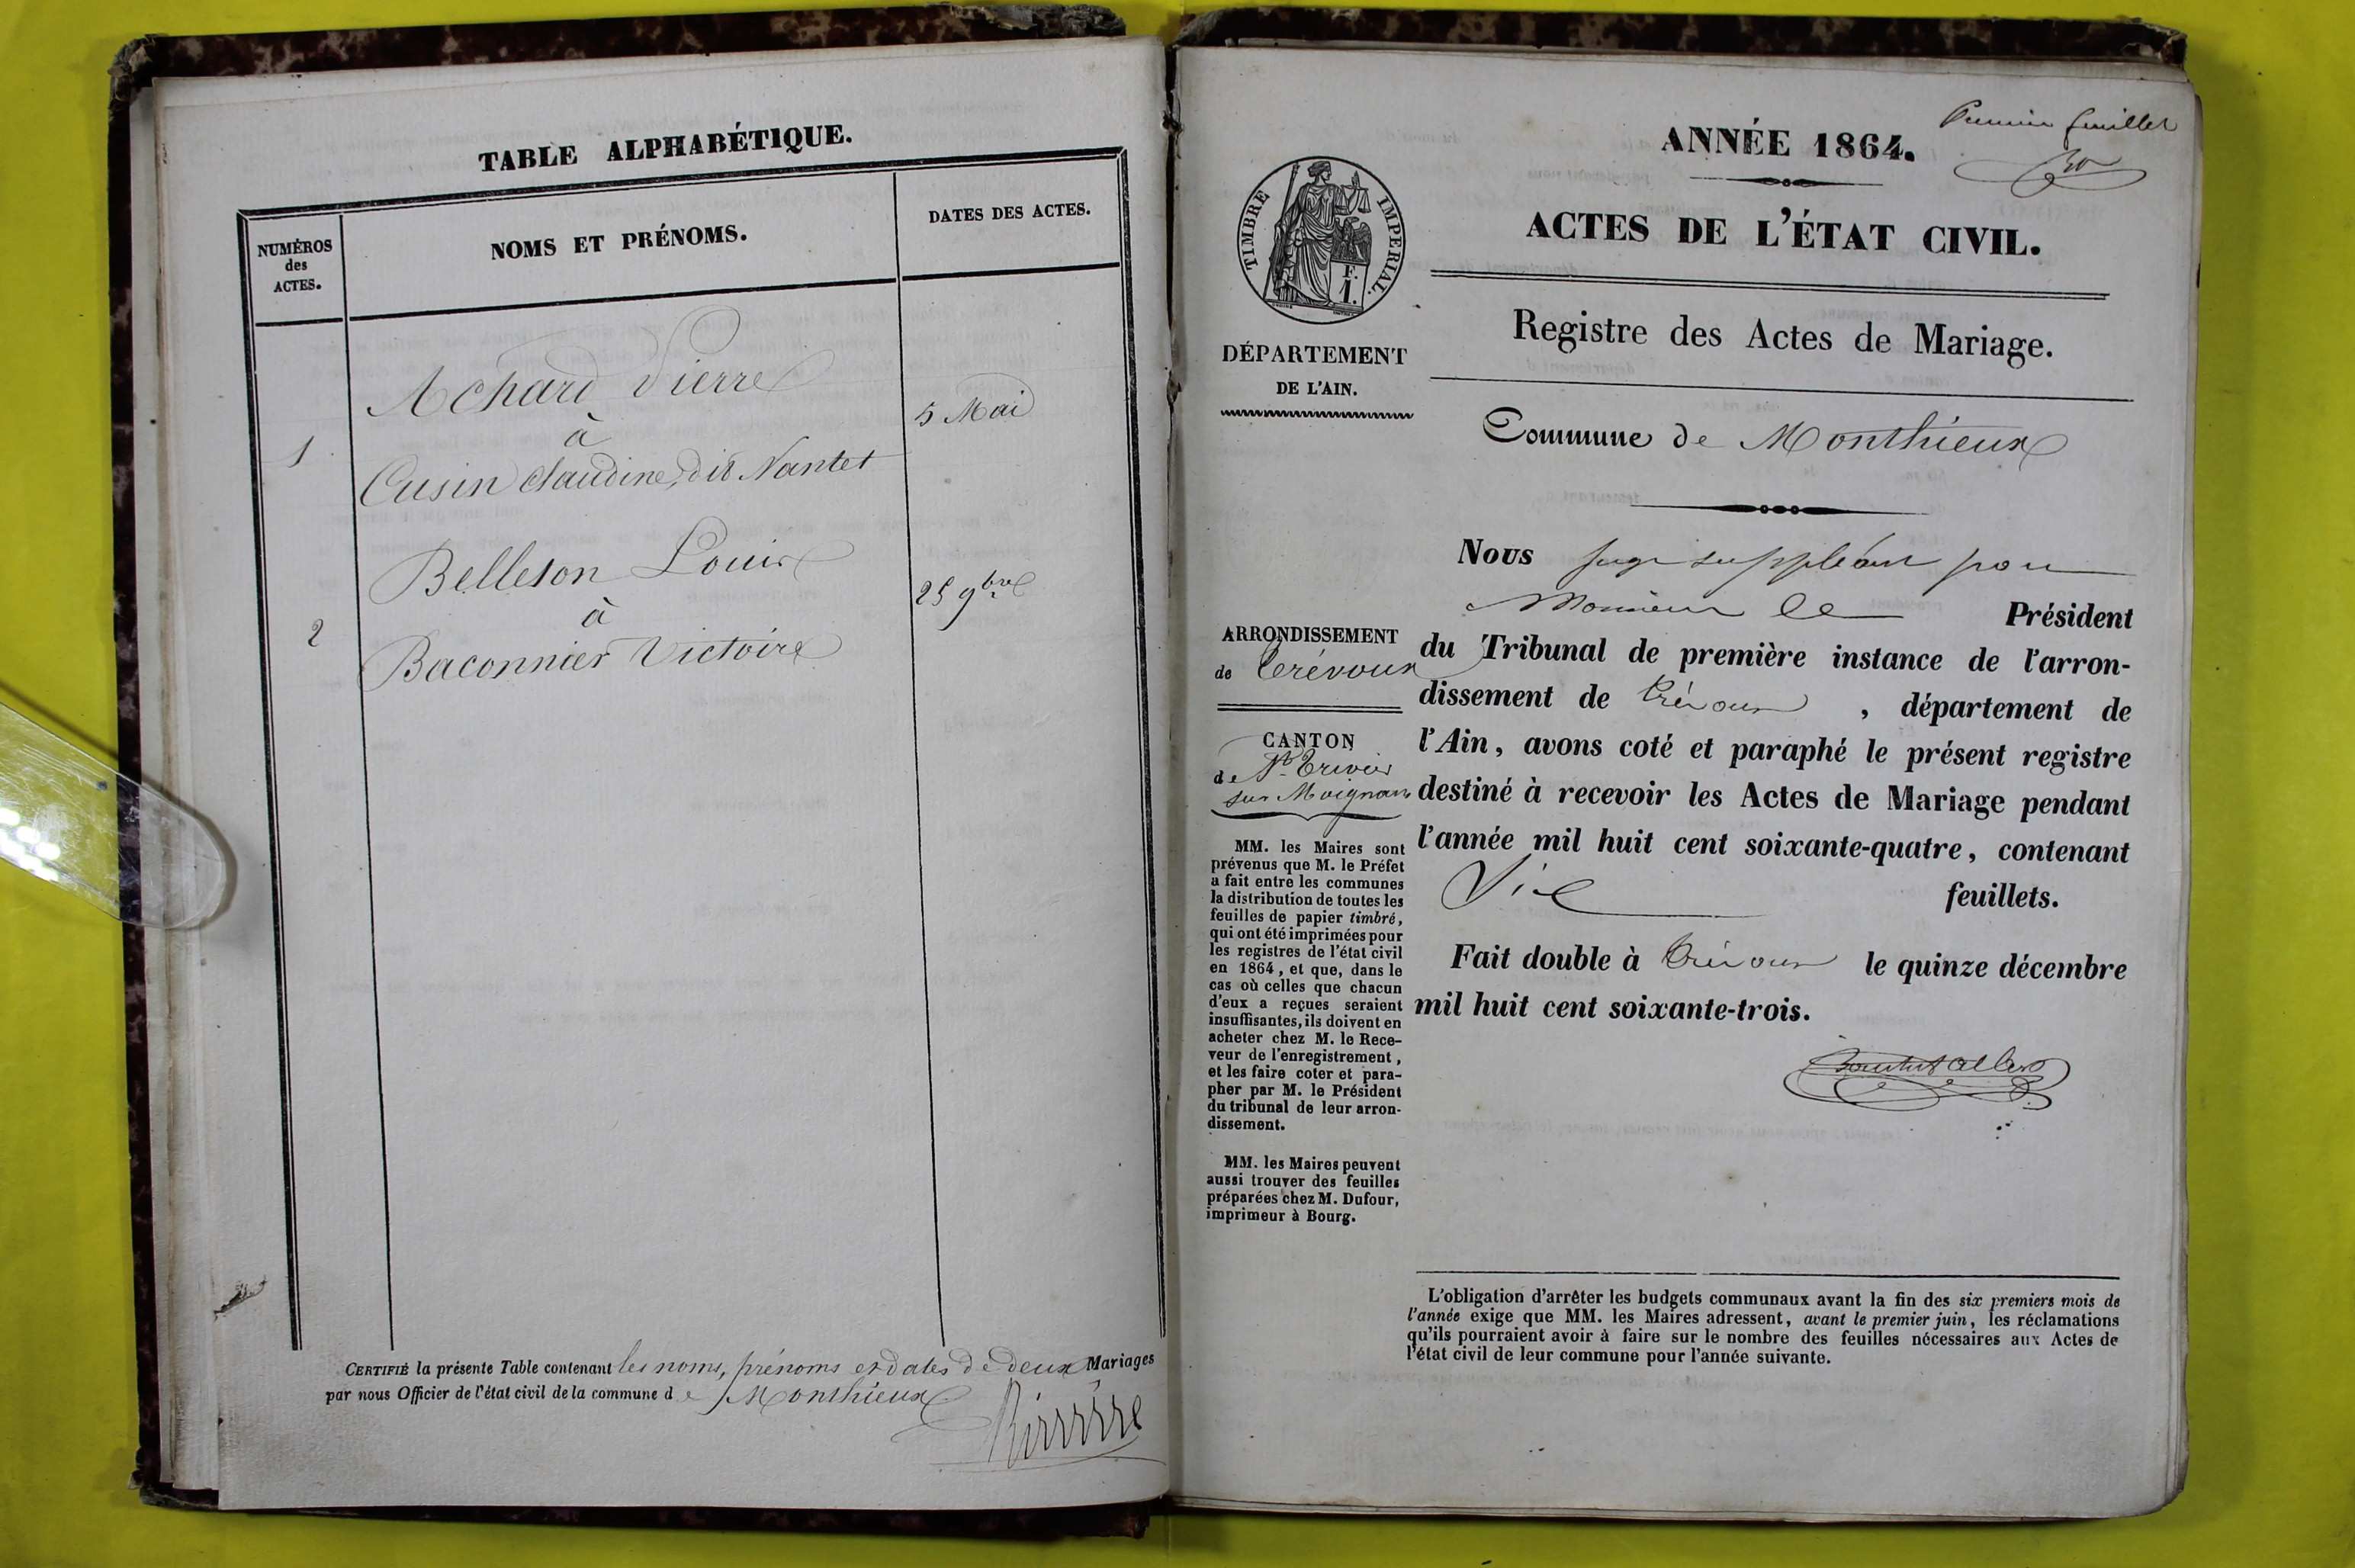 TABLE ALPHABÉTIQUE.
NUMÉROS
des
ACTES.
NOMS ET PRÉNOMS.
DATES DES ACTES.
Achard Pierre
5 Mai
à
1
Cusin Claudine, dit Nantet
Belleton Louis
25 9bre
à
2
Baconnier Victoire
CERTIFIÉ la présente Table contenant les noms, prénoms et dates de deux Mariages
par nous Officier de l'état civil de la commune de Monthieux
Premier feuillet
ANNÉE 1864.
ACTES DE L'ÉTAT CIVIL.
TIMBRE IMPÉRIAL.
F.
1.
Registre des Actes de Mariage.
DÉPARTEMENT
DE L'AIN.
Commune de Monthieux
ARRONDISSEMENT
de Trévoux
CANTON
de St Trivier
sur Moignans
MM. les Maires sont
prévenus que M. le Préfet
a fait entre les communes
la distribution de toutes les
feuilles de papier timbré,
qui ont été imprimées pour
les registres de l'état civil
en 1864, et que, dans le
cas où celles que chacun
d'eux a reçues seraient
insuffisantes, ils doivent en
acheter chez M. le Rece-
veur de l'enregistrement,
et les faire coter et para-
pher par M. le Président
du tribunal de leur arron-
dissement.
MM. les Maires peuvent
aussi trouver des feuilles
préparées chez M. Dufour,
imprimeur à Bourg.
Nous juge suppléant pour
Monsieur le Président
du Tribunal de première instance de l'arron-
dissement de Trévoux, département de
l'Ain, avons coté et paraphé le présent registre
destiné à recevoir les Actes de Mariage pendant
l'année mil huit cent soixante-quatre, contenant
Six feuillets.
Fait double à Trévoux le quinze décembre
mil huit cent soixante-trois.
L'obligation d'arrêter les budgets communaux avant la fin des six premiers mois de
l'année exige que MM. les Maires adressent, avant le premier juin, les réclamations
qu'ils pourraient avoir à faire sur le nombre des feuilles nécessaires aux Actes de
l'état civil de leur commune pour l'année suivante.